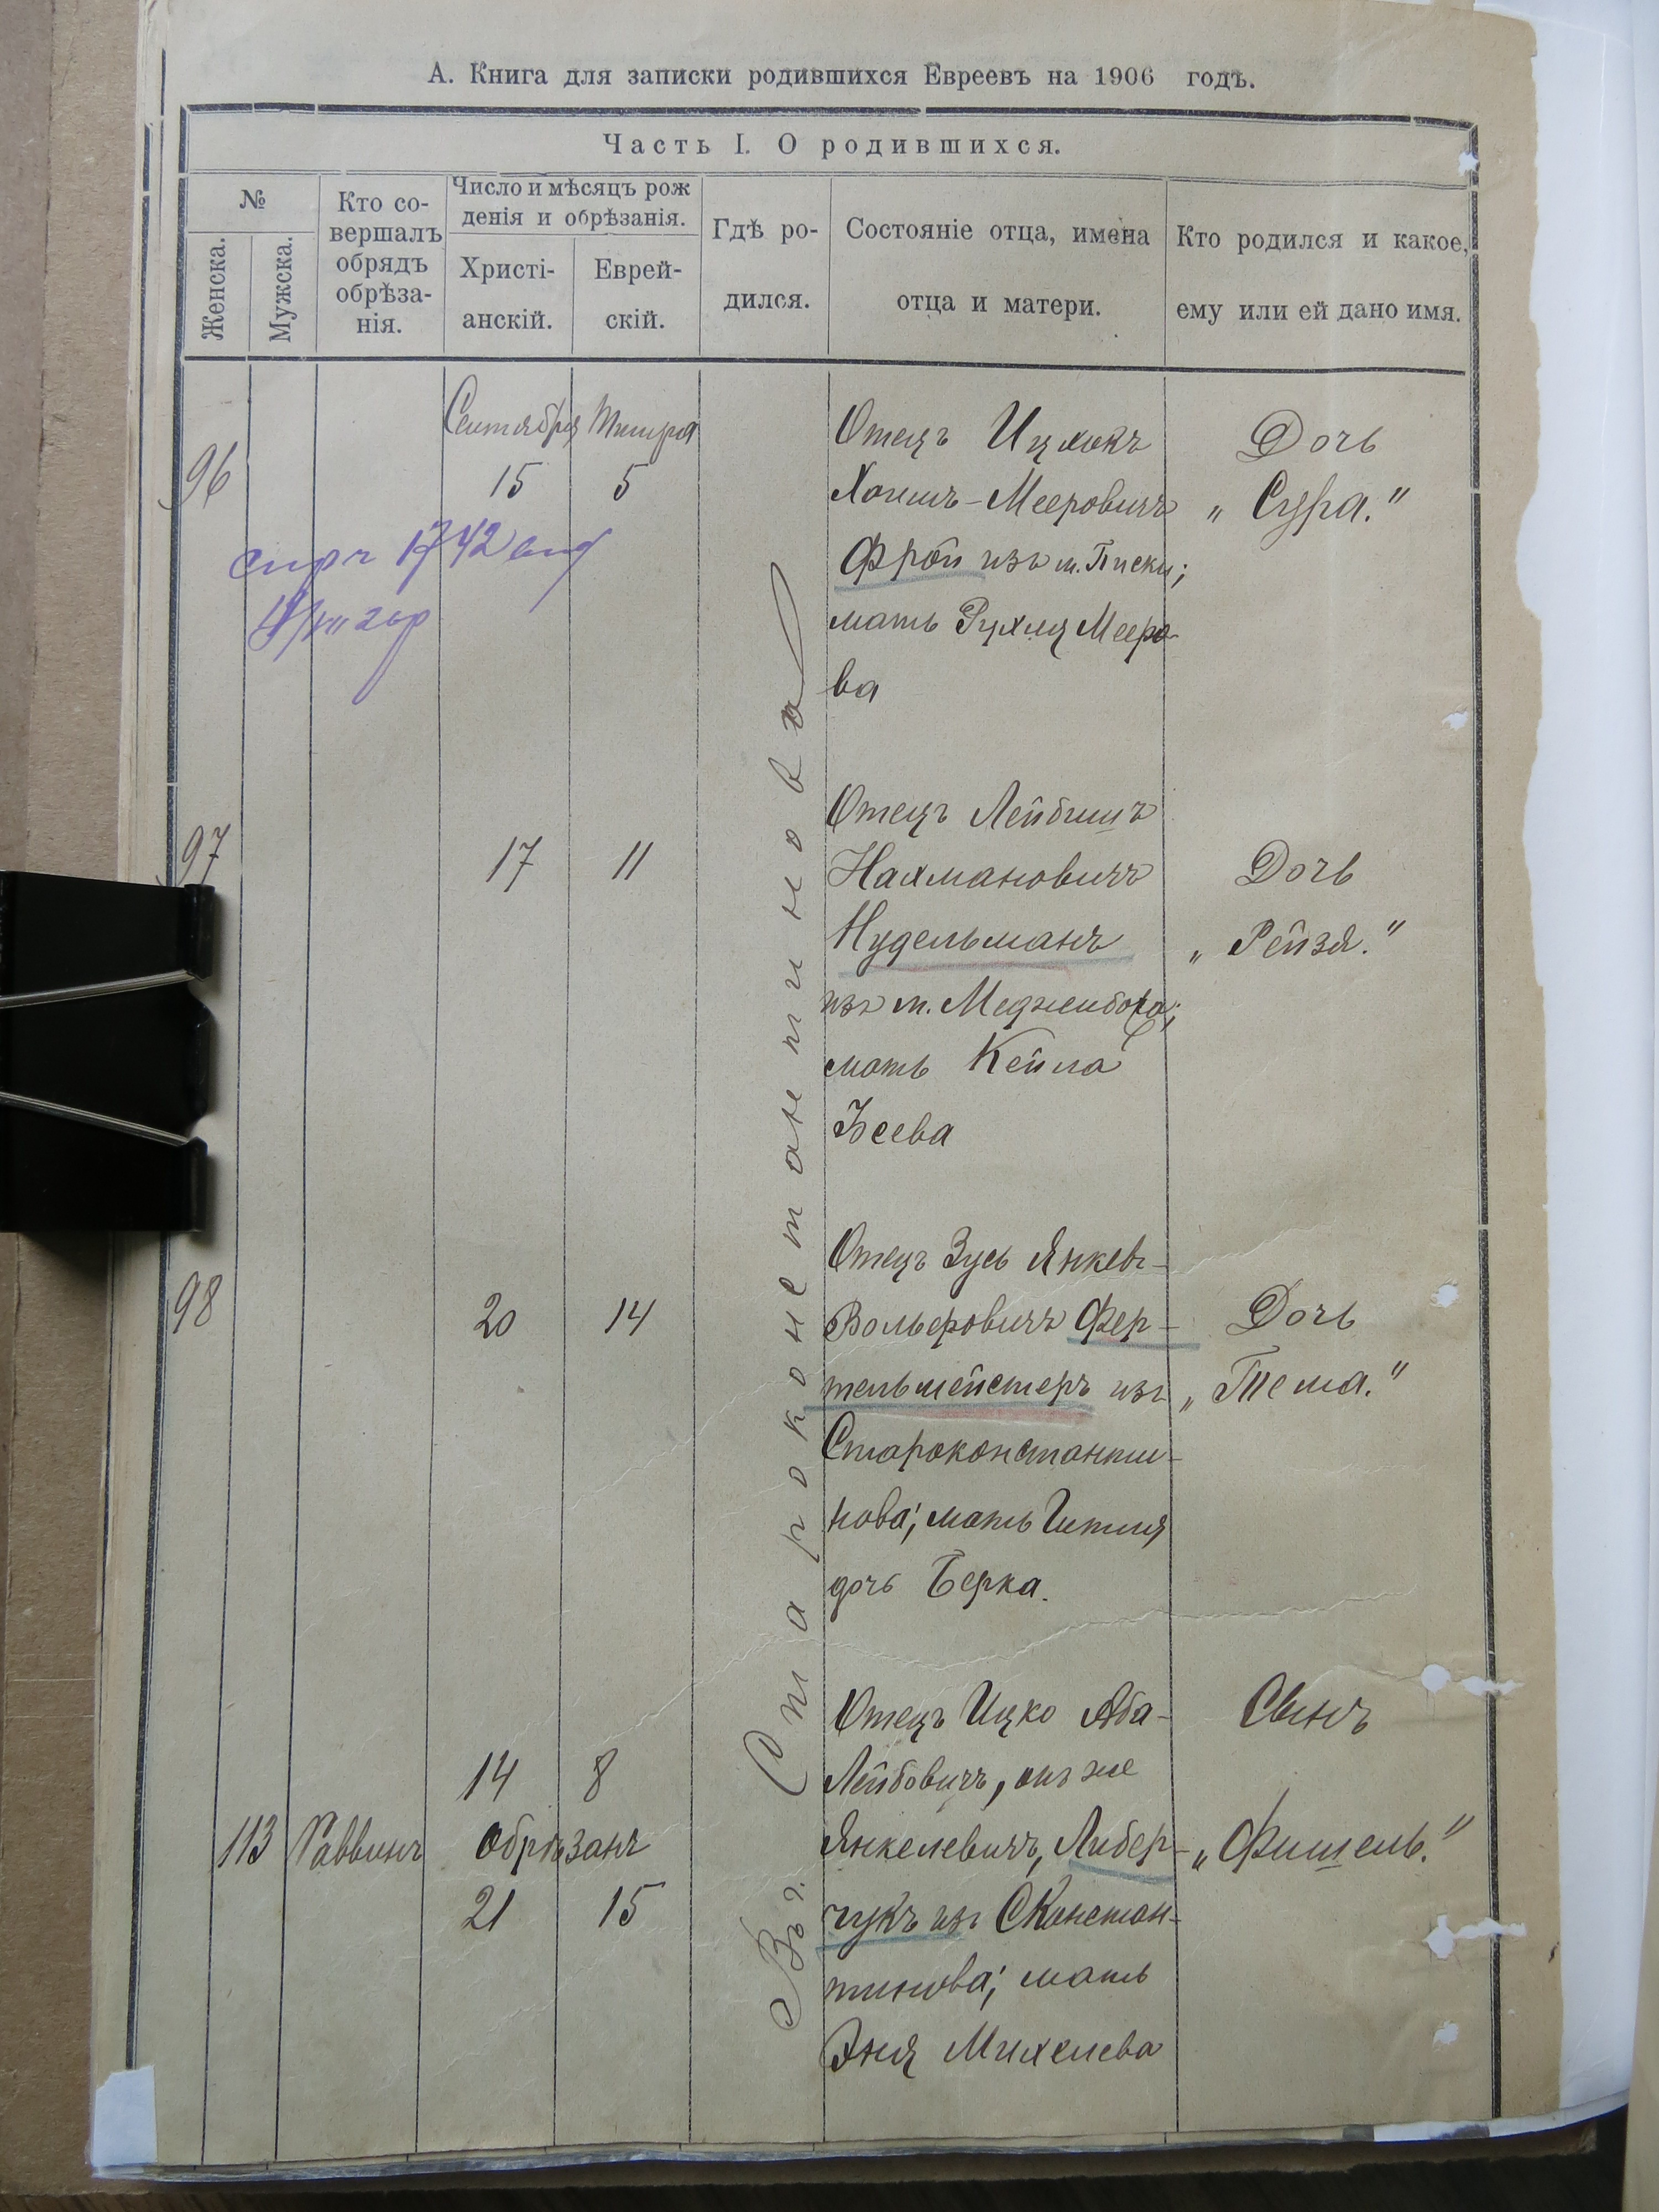 А. Книга для записки родившихся Евреевъ на 1906 годъ.
Часть I. О родившихся.
№
Женска.
Мужска.
Кто со-
вершалъ
обрядъ
обрѣза-
нія.
Число и мѣсяцъ рож
денія и обрѣзанія.
Христі-
анскій.
Еврей-
скій.
Гдѣ ро-
дился.
Состояніе отца, имена
отца и матери.
Кто родился и какое,
ему или ей дано имя.
96
Сентября Тишря
15 5
Отецъ Ицхокъ
Хаимъ-Мееровичъ
Фрой изъ м. Писки;
мать Рухля Мееро-
ва
Дочь
„Сура."
1742
97
17 11
Отецъ Лейбишъ
Нахмановичъ
Нудельманъ
изъ м. Меджибожа;
мать Кейла
Дочь
„Рейзя."
98
20 14
Отецъ Зусь Янкель-
Вольфовичъ Фер-
тельмейстеръ изъ
Староконстанти-
нова; мать Гитля
дочь Берка.
Дочь
„Тема."
113
Раввинъ
14 8
Обрѣзанъ
21 15
Отецъ Ицко Аба-
Лейбовичъ, онъ же
Янкелевичъ, Либер-
чукъ изъ СКонстан-
тинова; мать
Эня Михелева
Сынъ
„Фишель."
Въ г. Староконстантиновѣ